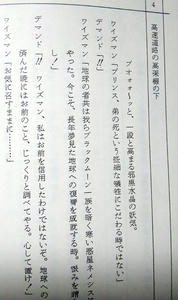 4
高速道路の高架橋の下
ブオォォーッと、一段と高まる邪黒水晶の妖気。
ワイズマン「プリンス、弟の死という些細な犠牲にこだわる時ではない」
デマンド「‼」
ワイズマン「地球の者共は我らブラックムーン一族を暗く寒い惑星ネメシス
やった。今こそ、長年夢見た地球への復讐を成就する時。恨みを
し！
デマンド「‼ ワイズマン、私はお前を信用したわけではないぞ。地球への
済んだ暁にはお前のこと、じっくりと調べてやる。心して置け！」
ワイズマン「お気に召すままに……」